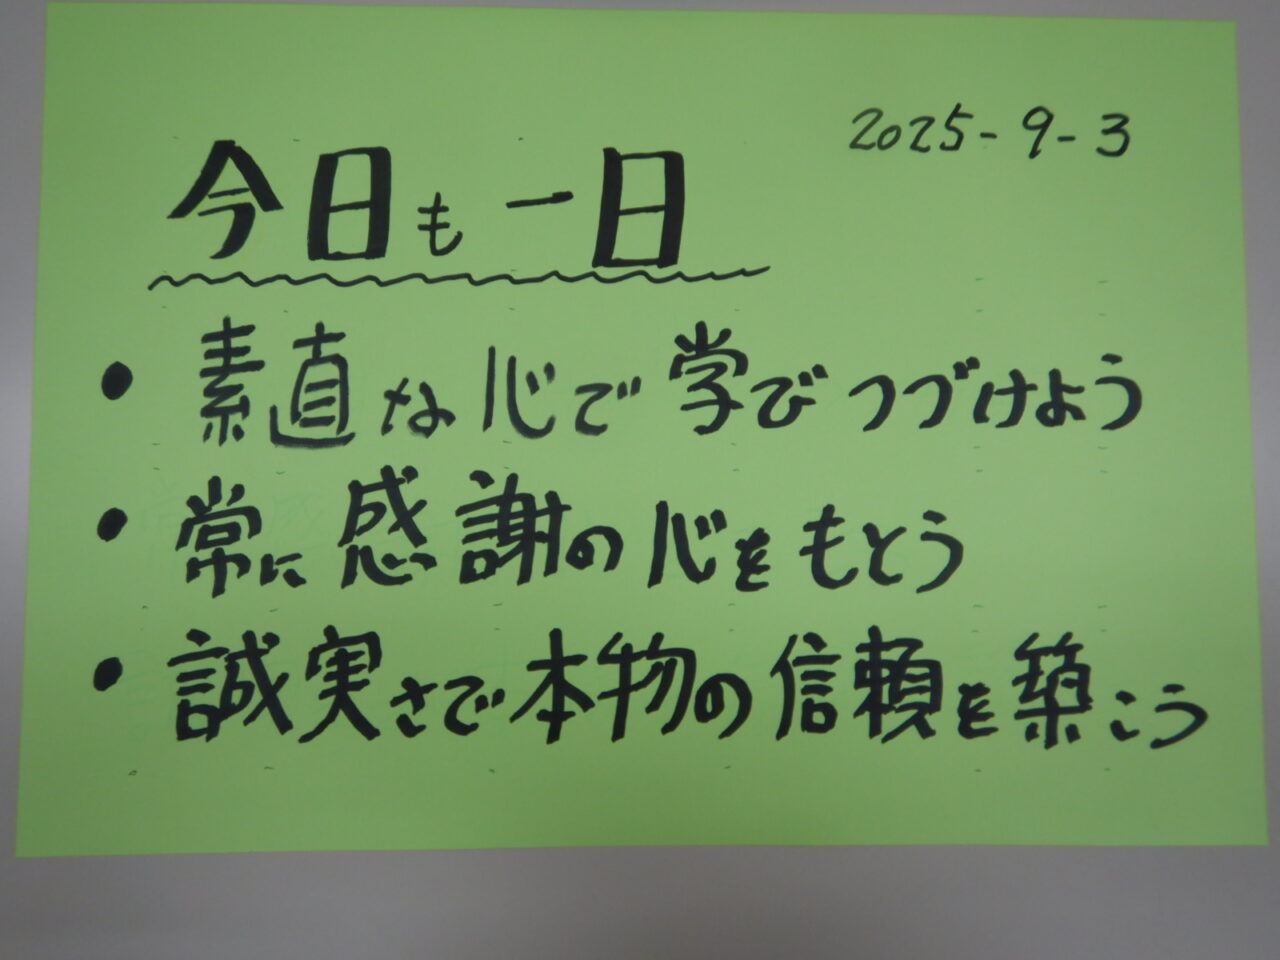 2025-9-3
今日も一日
・素直な心で学びつづけよう
・常に感謝の心をもとう
・誠実さで本物の信頼を築こう